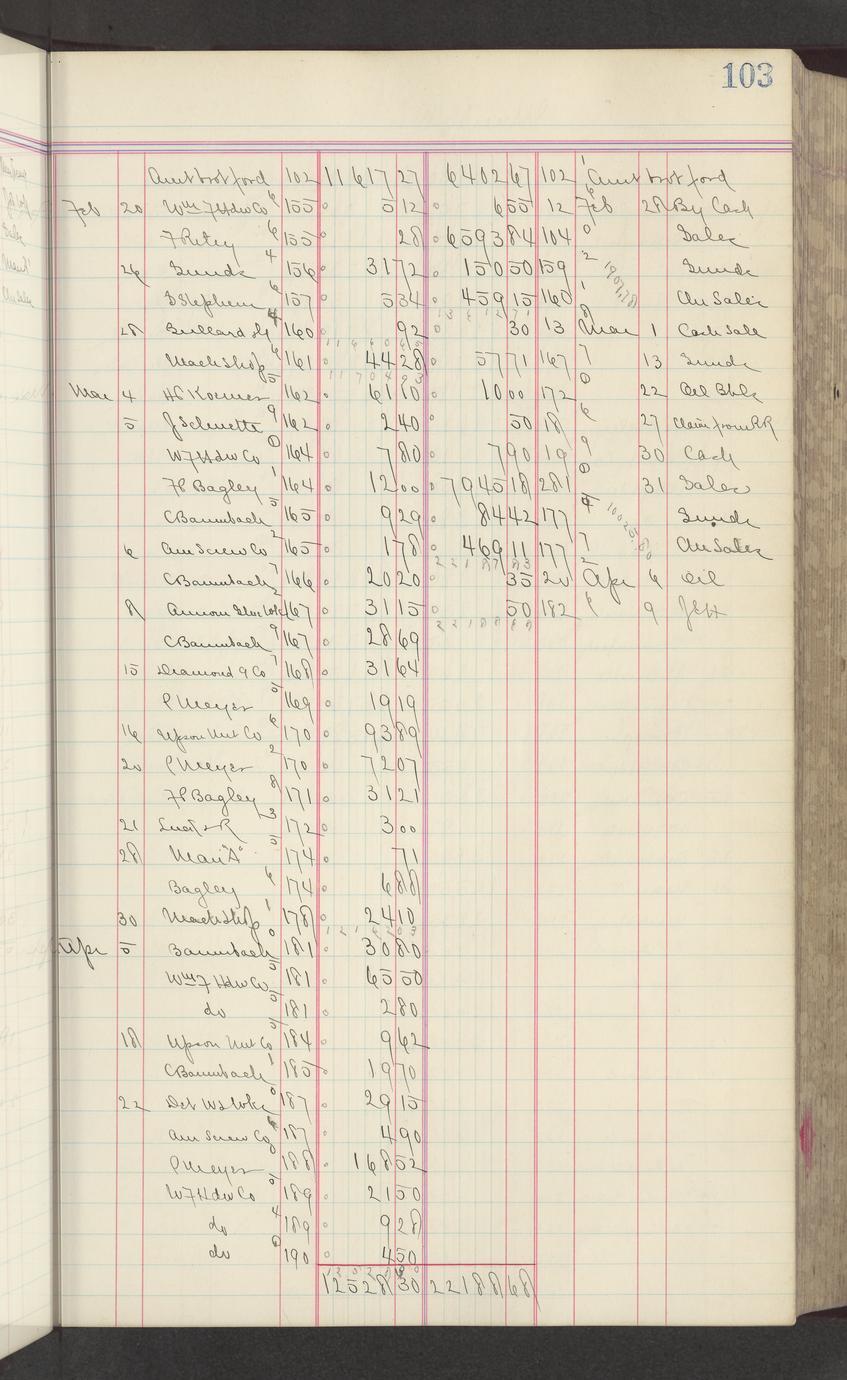 103
Amt brot ford 102 11617 27 6402 67 102 Amt brot ford
Feb 20 Wm F Hdw Co 155 5 12 6 55 12 Feb 28 By Cash
F Retey 155 28 6593 84 104 Sales
26 Sunds 156 31 72 150 50 159 Sunds
D Stephens 157 5 34 459 15 160 Am Sales
28 Bullard 160 92 30 13 Mar 1 Cash Sale
Mach Shop 161 44 28 57 71 167 13 Sunds
Mar 4 H Koerner 162 61 10 10 00 172 22 Oil Bbls
5 J Schmette 162 2 40 50 18 27 Claim from RR
W F Hdw Co 164 7 80 7 90 19 30 Cash
F P Bagley 164 12 00 7945 18 281 31 Sales
C Baumbach 165 9 29 84 42 177 Sunds
6 Am Screw Co 165 1 78 469 11 177 Am Sales
C Baumbach 166 20 20 35 20 Apr 6 Oil
8 167 31 15 50 182 9 J E H
C Baumbach 167 28 69
15 Diamond & Co 168 31 64
P Meyer 169 19 19
16 Upson Nut Co 170 93 89
20 P Meyer 170 72 07
F P Bagley 171 31 21
21 172 3 00
28 Man "A" 174 71
Bagley 174 6 88
30 Mach Shop 178 24 10
Apr 5 Baumbach 181 30 80
Wm F Hdw Co 181 65 50
do 181 2 80
18 Upson Nut Co 184 9 62
C Baumbach 185 19 70
22 Det 187 29 15
Am Screw Co 187 4 90
P Meyer 188 168 52
W F Hdw Co 189 21 50
do 189 9 28
do 190 4 50
12528 30 22188 68